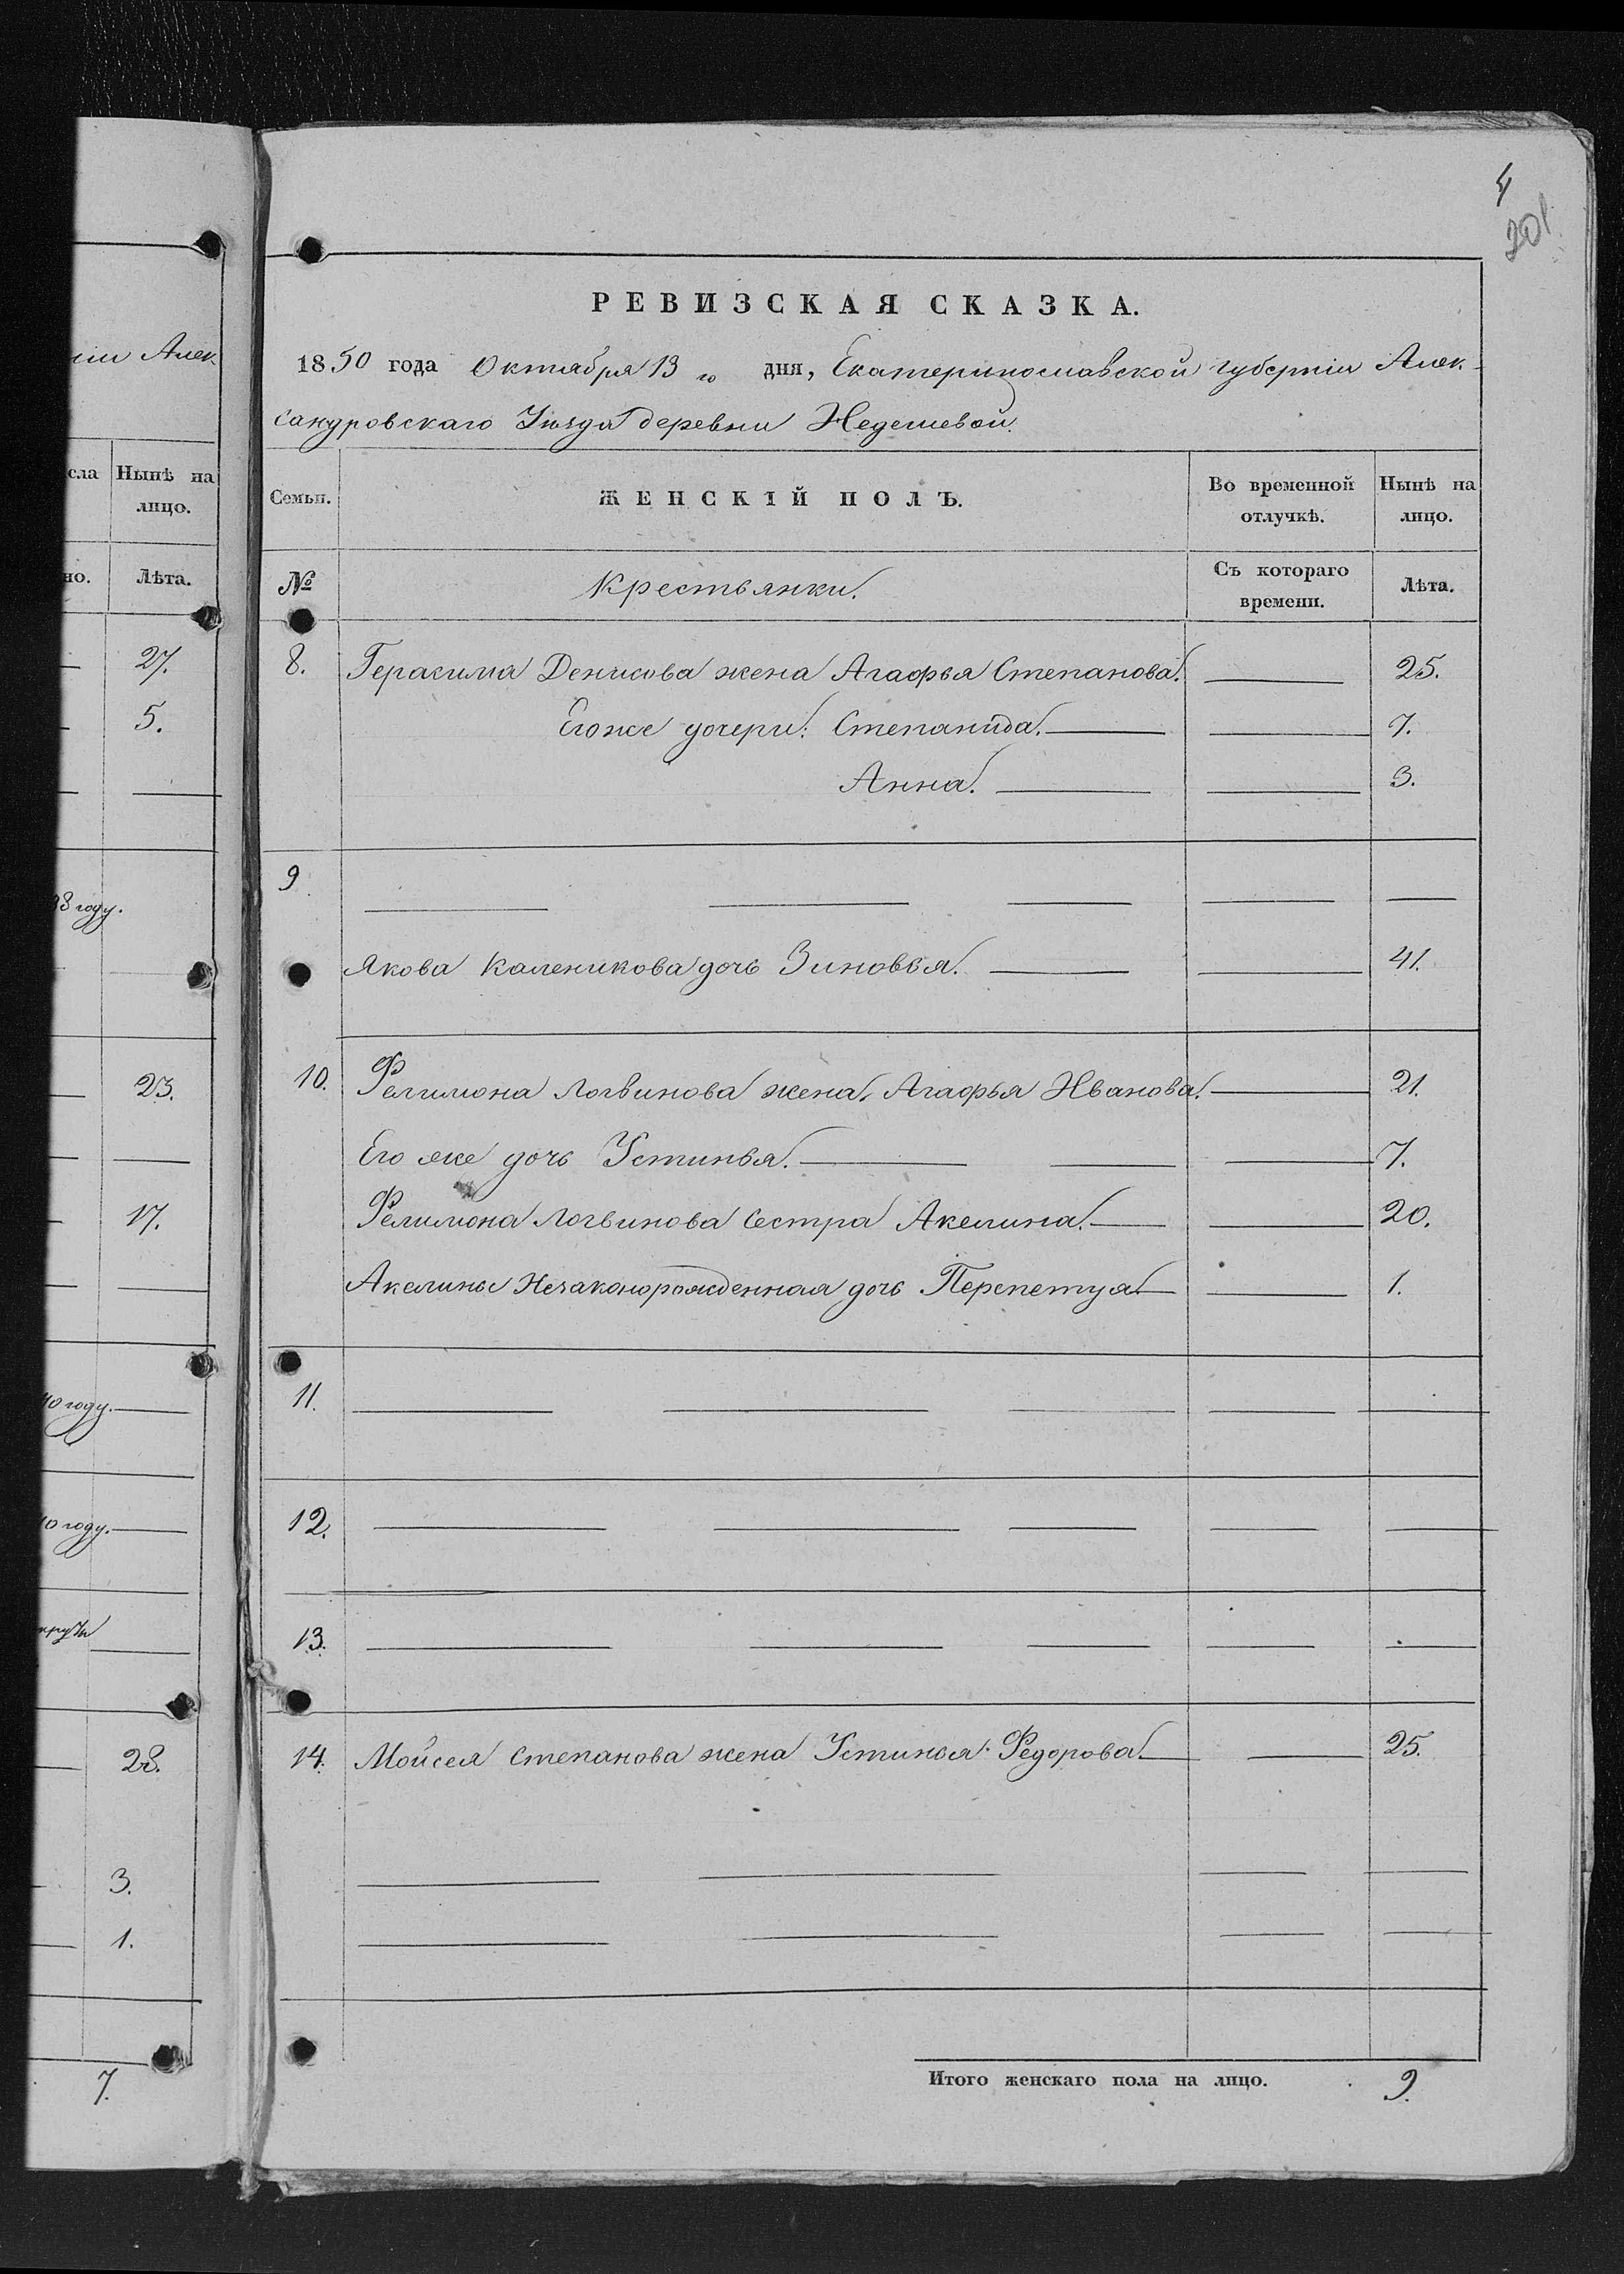 4
201
РЕВИЗСКАЯ СКАЗКА.
1850 года Октября 13 го дня, Екатеринославской губерніи Алек-
сандровскаго Уѣзда деревни Недешевой.
Семьи. ЖЕНСКІЙ ПОЛЪ. Во временной отлучкѣ. Нынѣ на лицо.
№ Крестьянки. Съ котораго времени. Лѣта.
8. Герасима Денисова жена Агафья Степанова. 25.
Его же дочери: Степанида. 7.
Анна. 3.
9
Якова Каленикова дочь Зиновья. 41.
10. Филимона Логвинова жена, Агафья Иванова. 21.
Его же дочь Устинья. 7.
Филимона Логвинова Сестра Акелина. 20.
Акелины Незаконорожденная дочь Перепетуя 1.
11.
12.
13.
14. Мойсея Степанова жена Устинья Федорова. 25.
Итого женскаго пола на лицо. 9.
ніи Алек-
сла Нынѣ на лицо.
но. Лѣта.
27.
5.
году.
23.
17.
40 году.
году.
28.
3.
1.
7.